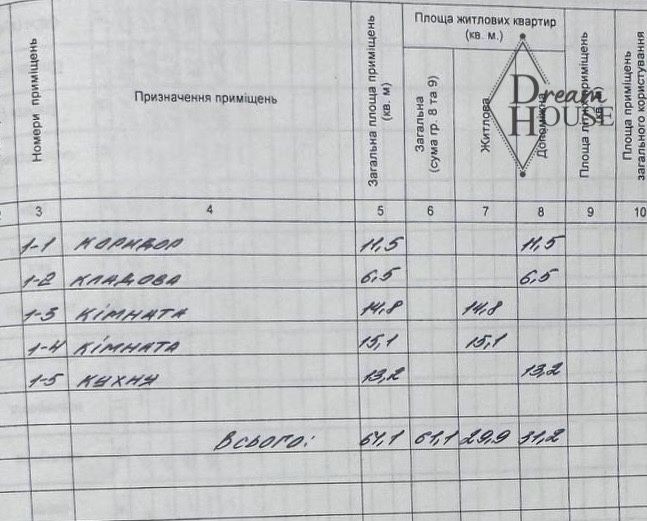 Номери приміщень
Призначення приміщень
Загальна площа приміщень (кв. м)
Площа житлових квартир
(кв. м.)
Загальна
(сума гр. 8 та 9)
Житлова
Допоміжна
Площа приміщень
Площа приміщень
загального користування
Dream
House
3 4 5 6 7 8 9 10
1-1 коридор 11,5 11,5
1-2 кладова 6,5 6,5
1-3 кімната 14,8 14,8
1-4 кімната 15,1 15,1
1-5 кухну 13,2 13,2
Всього: 61,1 61,1 29,9 31,2